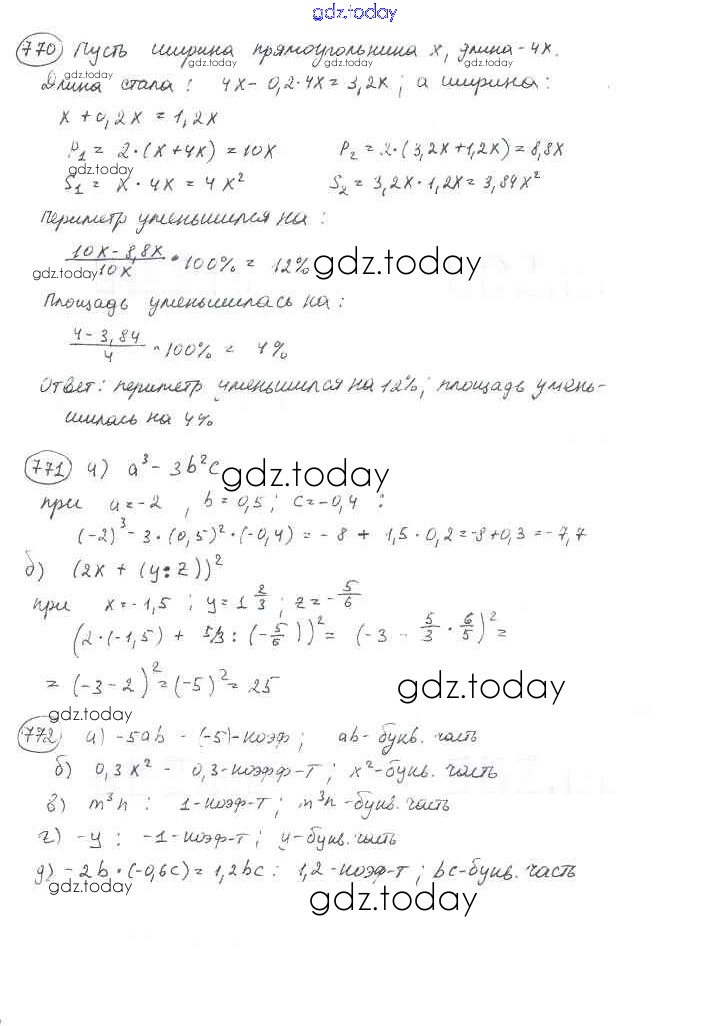 gdz.today
770 Пусть ширина прямоугольника x, длина - 4x.
gdz.today gdz.today gdz.today
Длина стала: 4x - 0,2·4x = 3,2x; а ширина:
gdz.today gdz.today gdz.today
x + 0,2x = 1,2x
P₁ = 2·(x+4x) = 10x P₂ = 2·(3,2x+1,2x) = 8,8x
gdz.today
S₁ = x·4x = 4x² S₂ = 3,2x·1,2x = 3,84x²
Периметр уменьшился на:
(10x - 8,8x)/10x · 100% = 12% gdz.today
gdz.today
Площадь уменьшилась на:
(4 - 3,84)/4 · 100% = 4%
Ответ: периметр уменьшился на 12%; площадь умень-
шилась на 4%
771 а) a³ - 3b²c gdz.today
при a = -2, b = 0,5; c = -0,4:
(-2)³ - 3·(0,5)²·(-0,4) = -8 + 1,5·0,2 = -8+0,3 = -7,7
б) (2x + (y:z))²
при x = -1,5; y = 1 2/3; z = -5/6
(2·(-1,5) + 5/3 : (-5/6))² = (-3 - 5/3 · 6/5)² =
= (-3-2)² = (-5)² = 25 gdz.today
gdz.today
772 а) -5ab - (-5)-коэф; ab - букв. часть
б) 0,3x² - 0,3-коэфф-т; x²-букв. часть
в) m³n : 1-коэф-т; m³n -букв. часть
г) -y : -1-коэф-т; y-букв. часть
д) -2b·(-0,6c) = 1,2bc : 1,2-коэф-т; bc-букв. часть
gdz.today
gdz.today